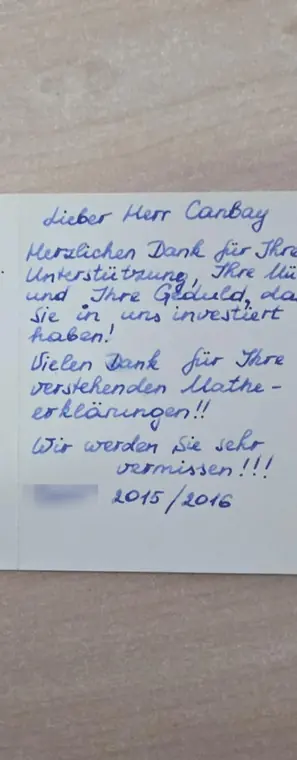 Lieber Herr Canbay
Herzlichen Dank für Ihre
Unterstützung, Ihre Mü
und Ihre Geduld, da
Sie in uns investiert
haben!
Vielen Dank für Ihre
verstehenden Mathe-
erklärungen!!
Wir werden Sie sehr
vermissen!!!
2015/2016